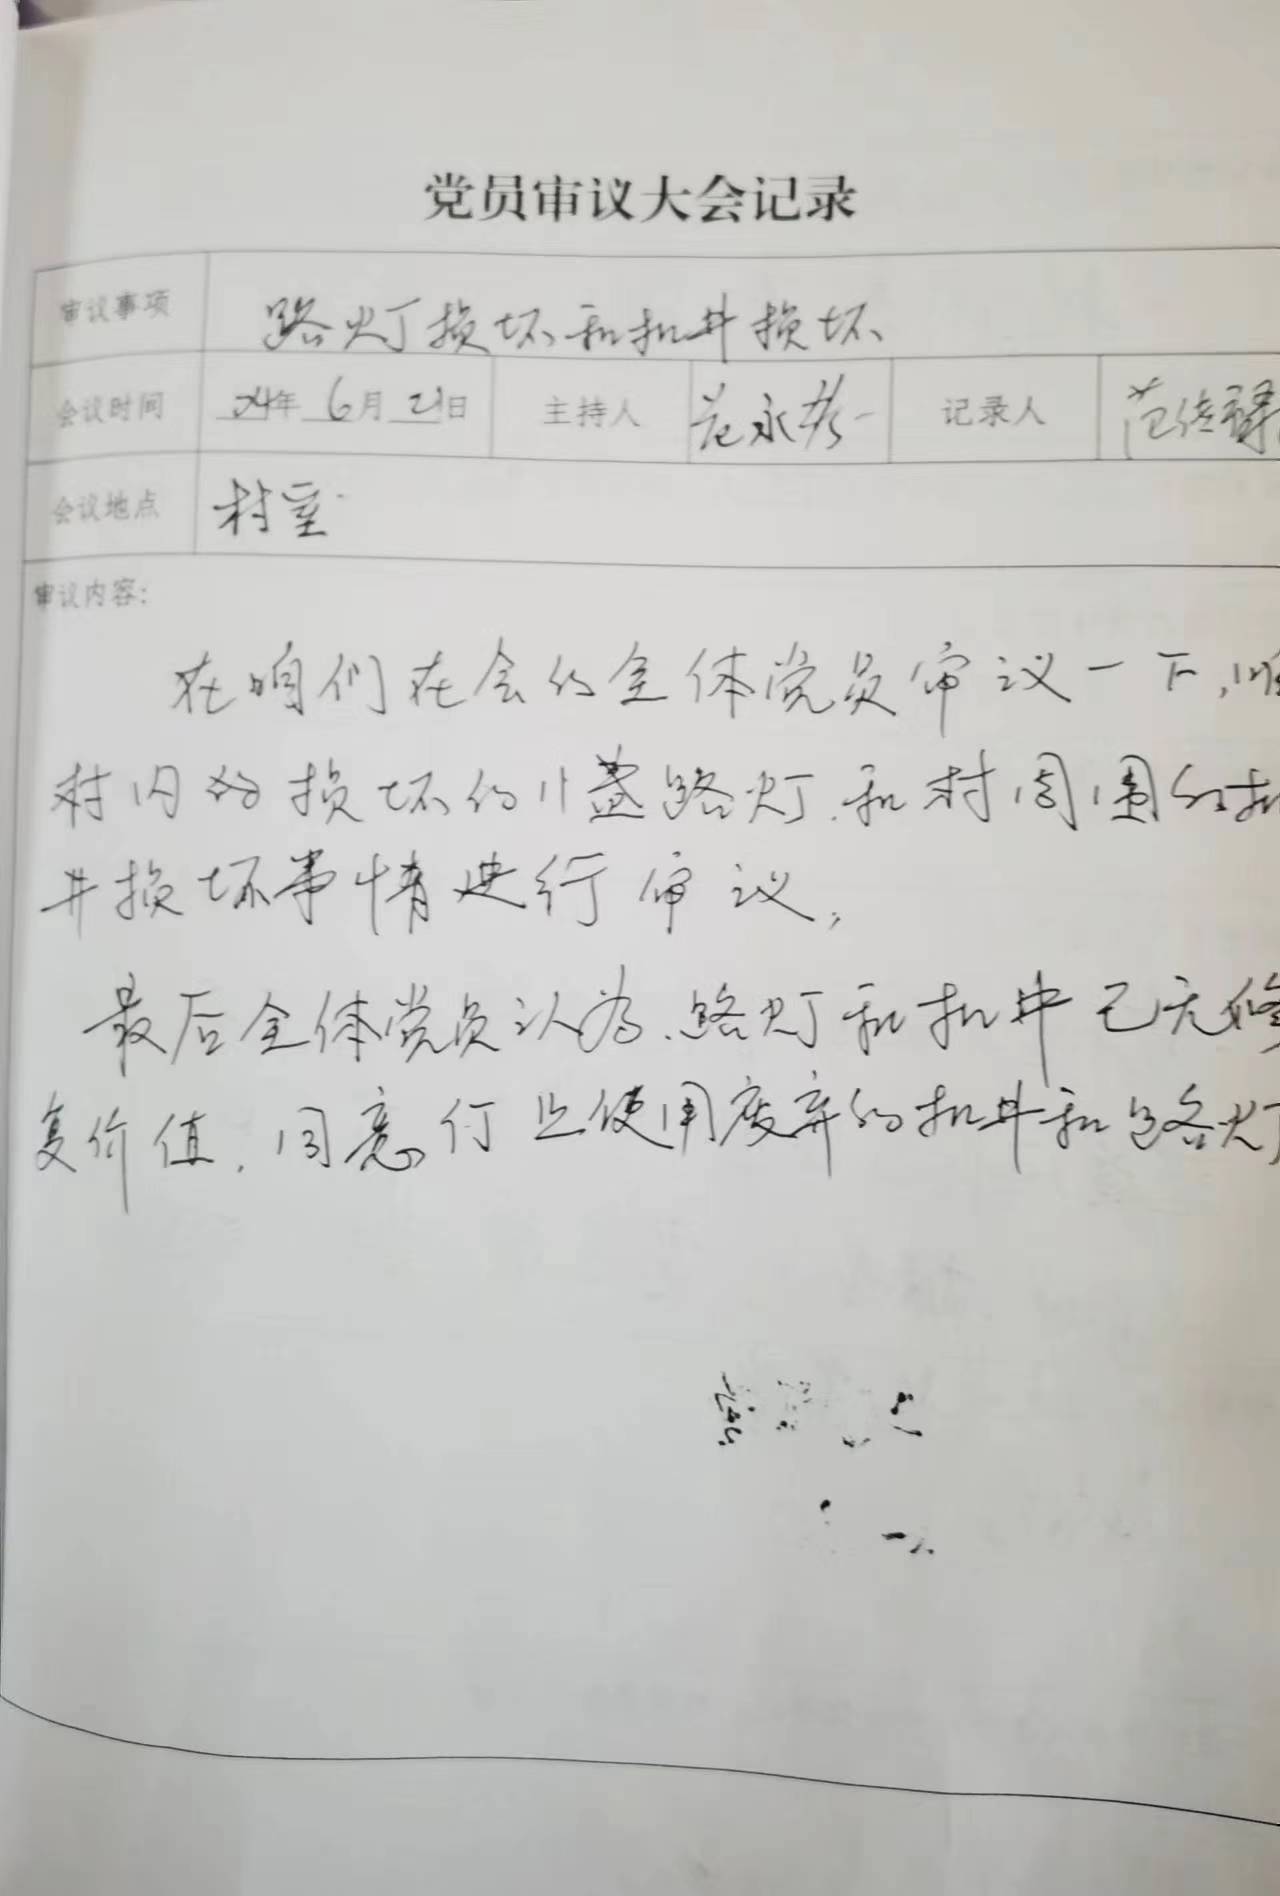 党员审议大会记录
审议事项 路灯损坏和机井损坏
会议时间 24年 6月 21日 主持人 范永 记录人 范
会议地点 村室
审议内容:
在咱们在会的全体党员审议一下,
村内的损坏的11盏路灯.和村周围的机
井损坏事情进行审议,
最后全体党员认为.路灯和机井已无修
复价值.同意停止使用废弃的机井和路灯